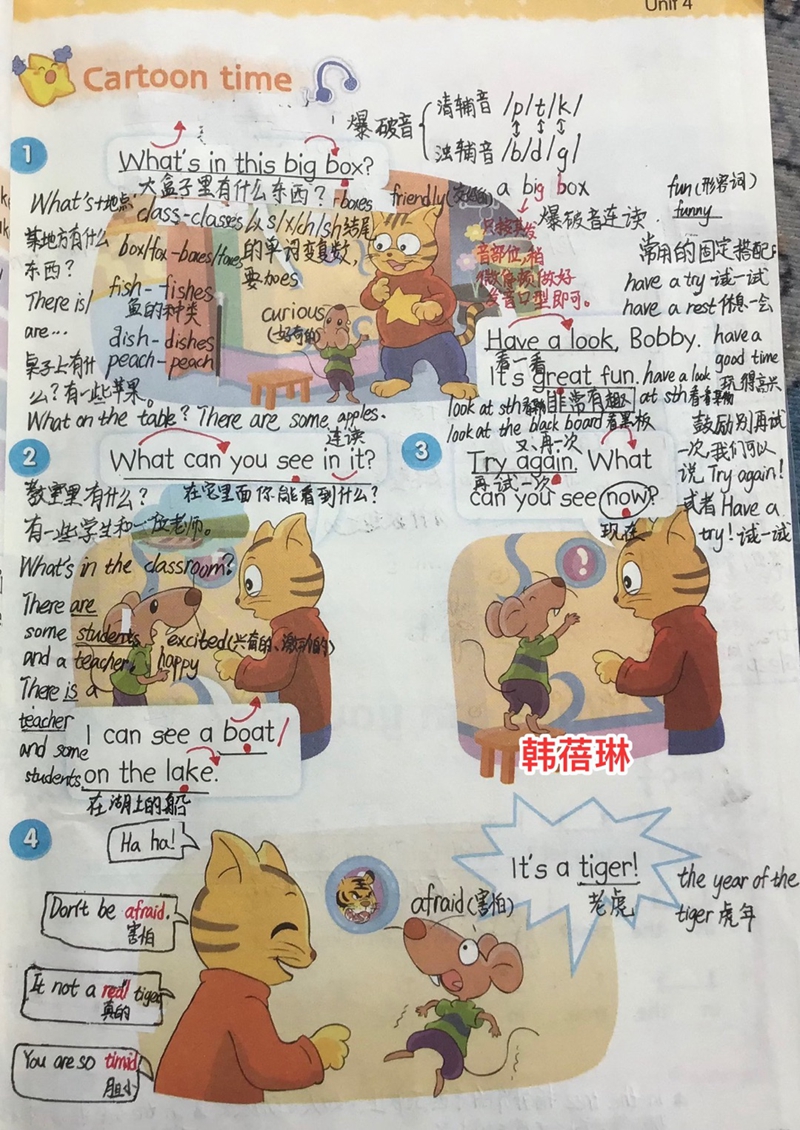 Unit 4
Cartoon time
爆破音
清辅音 /p/t/k/
浊辅音 /b/d/g/
1
What's in this big box?
大盒子里有什么东西?
boxes
friendly
a big box
爆破音连读
fun(形容词)
funny
What's+地点
某地方有什么
东西?
There is/
are...
桌子上有什
么?有一些苹果。
class-classes
/s/x/ch/sh结尾
box/fox-boxes/foxes
的单词变复数,
要加es
fish-fishes
鱼的种类
dish-dishes
peach-peach
curious
(好奇的)
音部位,稍
发音口型即可。
常用的固定搭配:
have a try 试一试
have a rest 休息一会
Have a look, Bobby.
看一看
It's great fun.
非常有趣
have a
good time
玩得高兴
have a look
at sth
look at sth
look at the black board 看黑板
What on the table? There are some apples.
2
连读
What can you see in it?
在它里面你能看到什么?
教室里有什么?
有一些学生和一位老师。
What's in the classroom?
There are
some students
and a teacher.
There is a
teacher
and some
students
excited(兴奋的、激动的)
happy
I can see a boat/
on the lake.
在湖上的船
3
又,再一次
Try again. What
再试一次
can you see now?
现在
鼓励别人再试
一次,我们可以
说 Try again!
或者 Have a
try! 试一试
韩蓓琳
4
Ha ha!
Don't be afraid.
害怕
It not a real tiger
真的
You are so timid
胆小
afraid(害怕)
It's a tiger!
老虎
the year of the
tiger 虎年